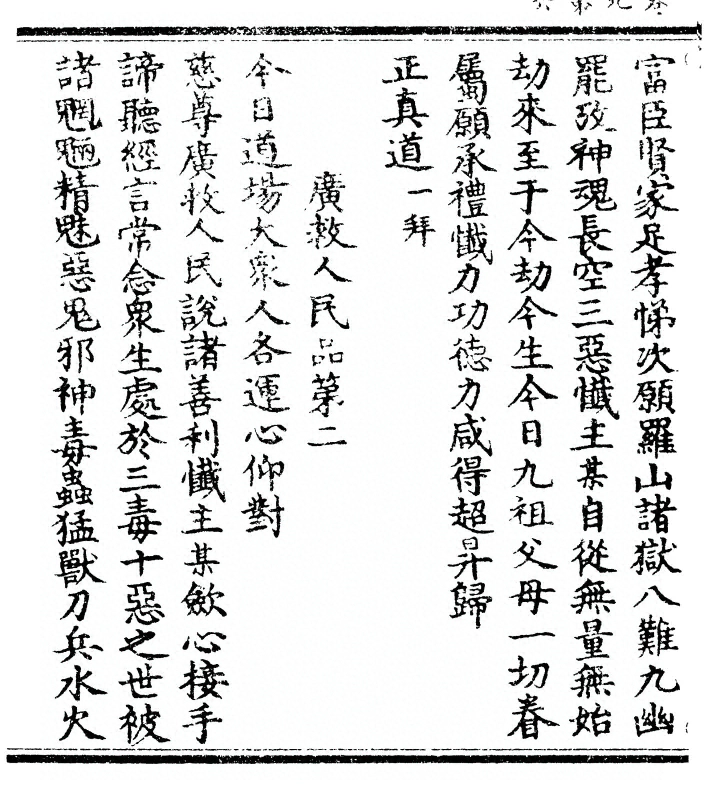 富臣賢家足孝悌次願羅山諸獄八難九幽
罷攷神魂長空三惡懺主某自從無量無始
劫來至于今劫今生今日九祖父母一切眷
屬願承禮懺力功德力咸得超昇歸
正真道一拜
廣救人民品第二
今日道場大衆人各運心仰對
慈尊廣救人民說諸善利懺主某歛心接手
諦聽經言常念衆生處於三毒十惡之世被
諸魍魎精魅惡鬼邪神毒蟲猛獸刀兵水火